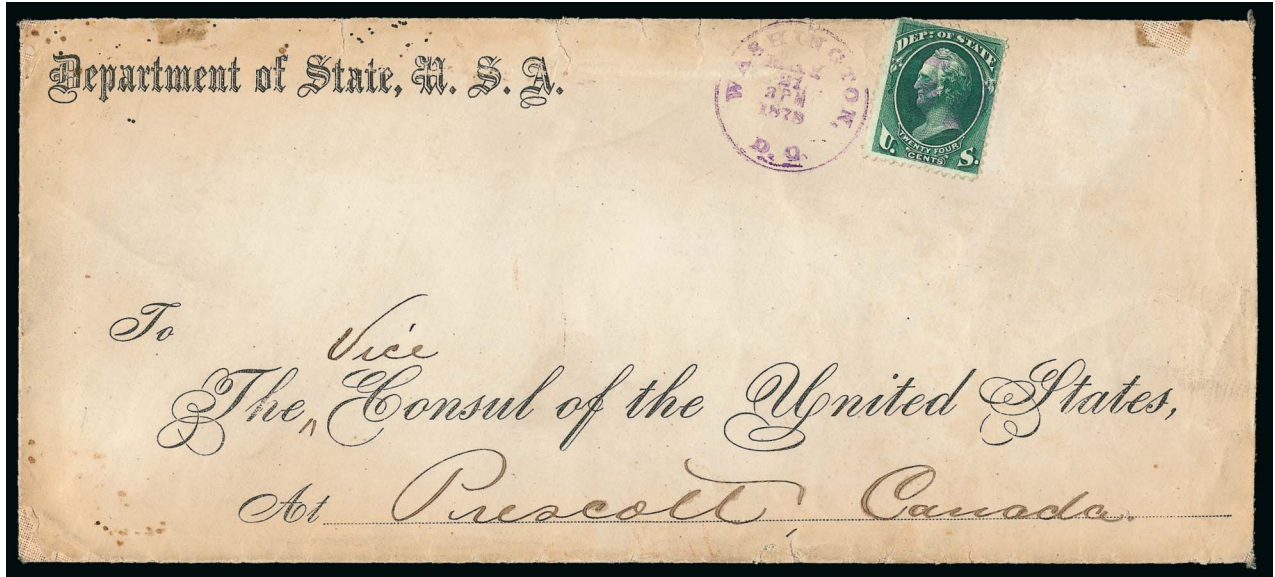 Department of State, U. S. A.
WASHINGTON,
MAR
21
2PM
1878
D. C.
DEPT: OF STATE
TWENTY FOUR
CENTS
U. S.
To
Vice
The ^ Consul of the United States,
At Prescott, Canada.